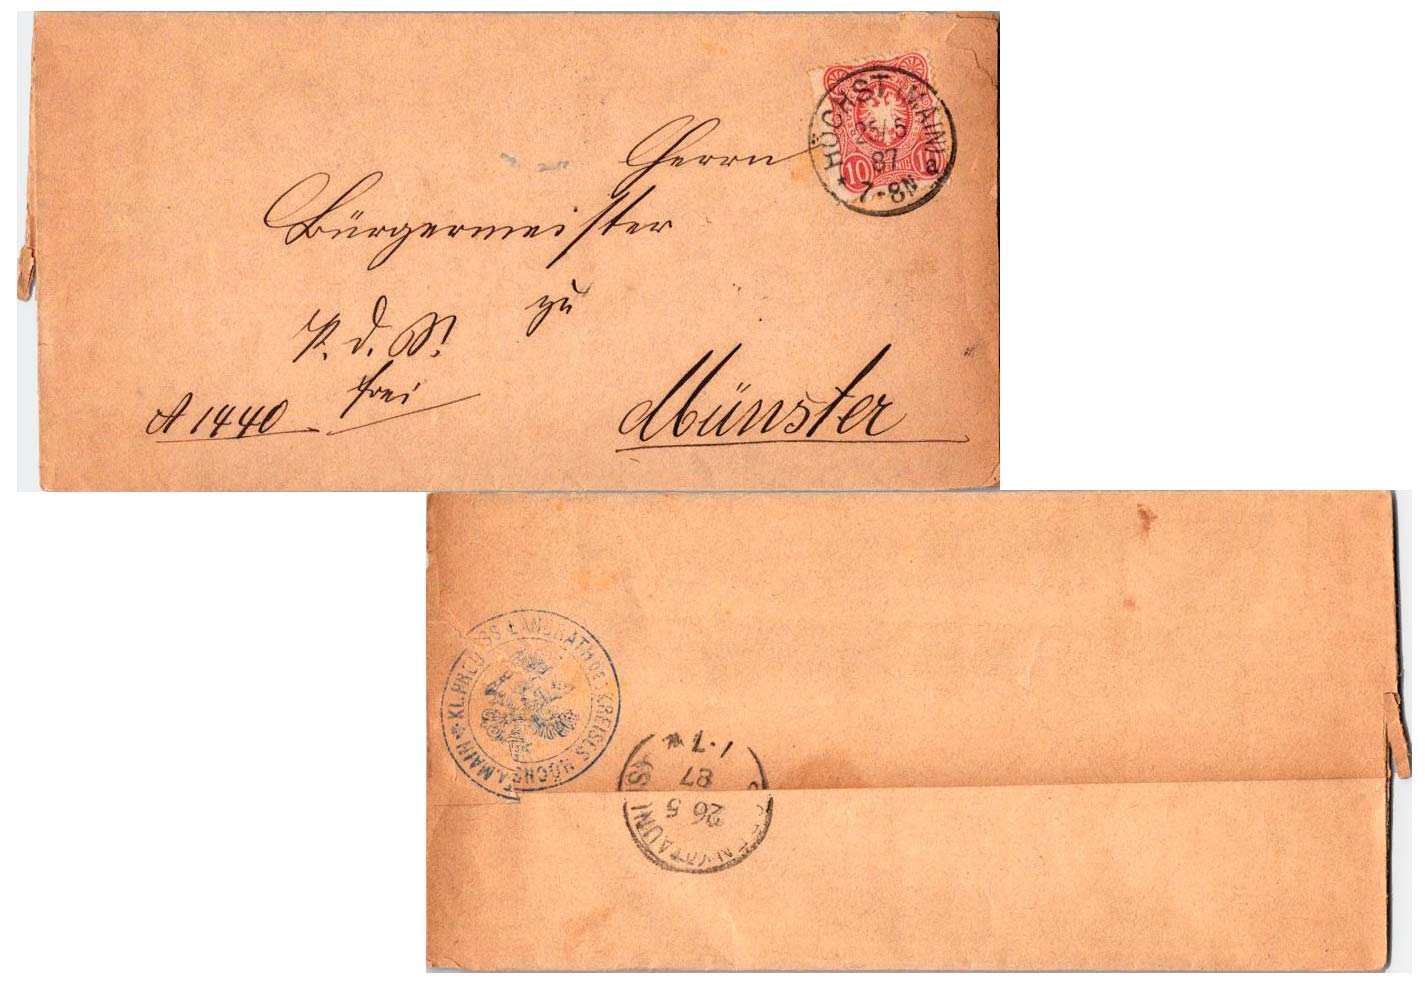 HÖCHST (MAIN) a
25/5
87
7-8N
10 10
Herrn
Bürgermeister
zu
P. d. S.
frei
A 1440
Münster
KL. PREUSS. LANDRATH DES KREISES HÖCHST A. MAIN
26 5
87
(TAUNUS)